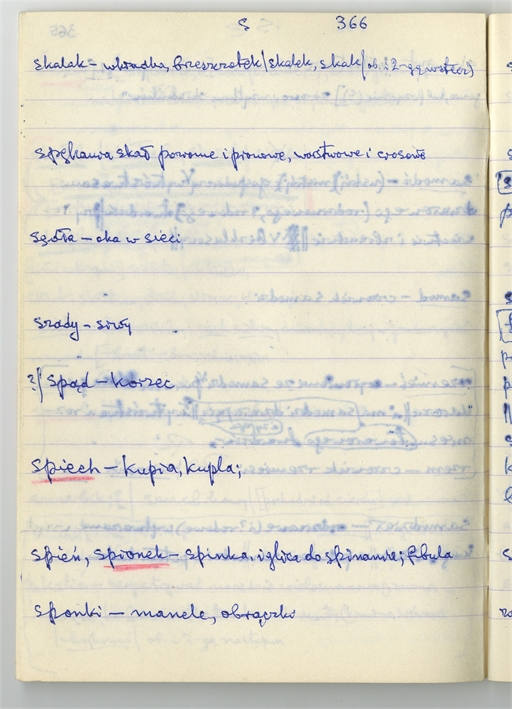 S 366
skalak - wkradka, brzeszczotek/skalek, skak/
spękania skał poziome i pionowe, warstwowe i ciosowe
szóła - oka w sieci
szady - siwy
?/ spąd - korzec
spiech - kupia, kupla;
spień, spionek - spinka, iglica do spinania; fibula
sponki - manele, obrączki